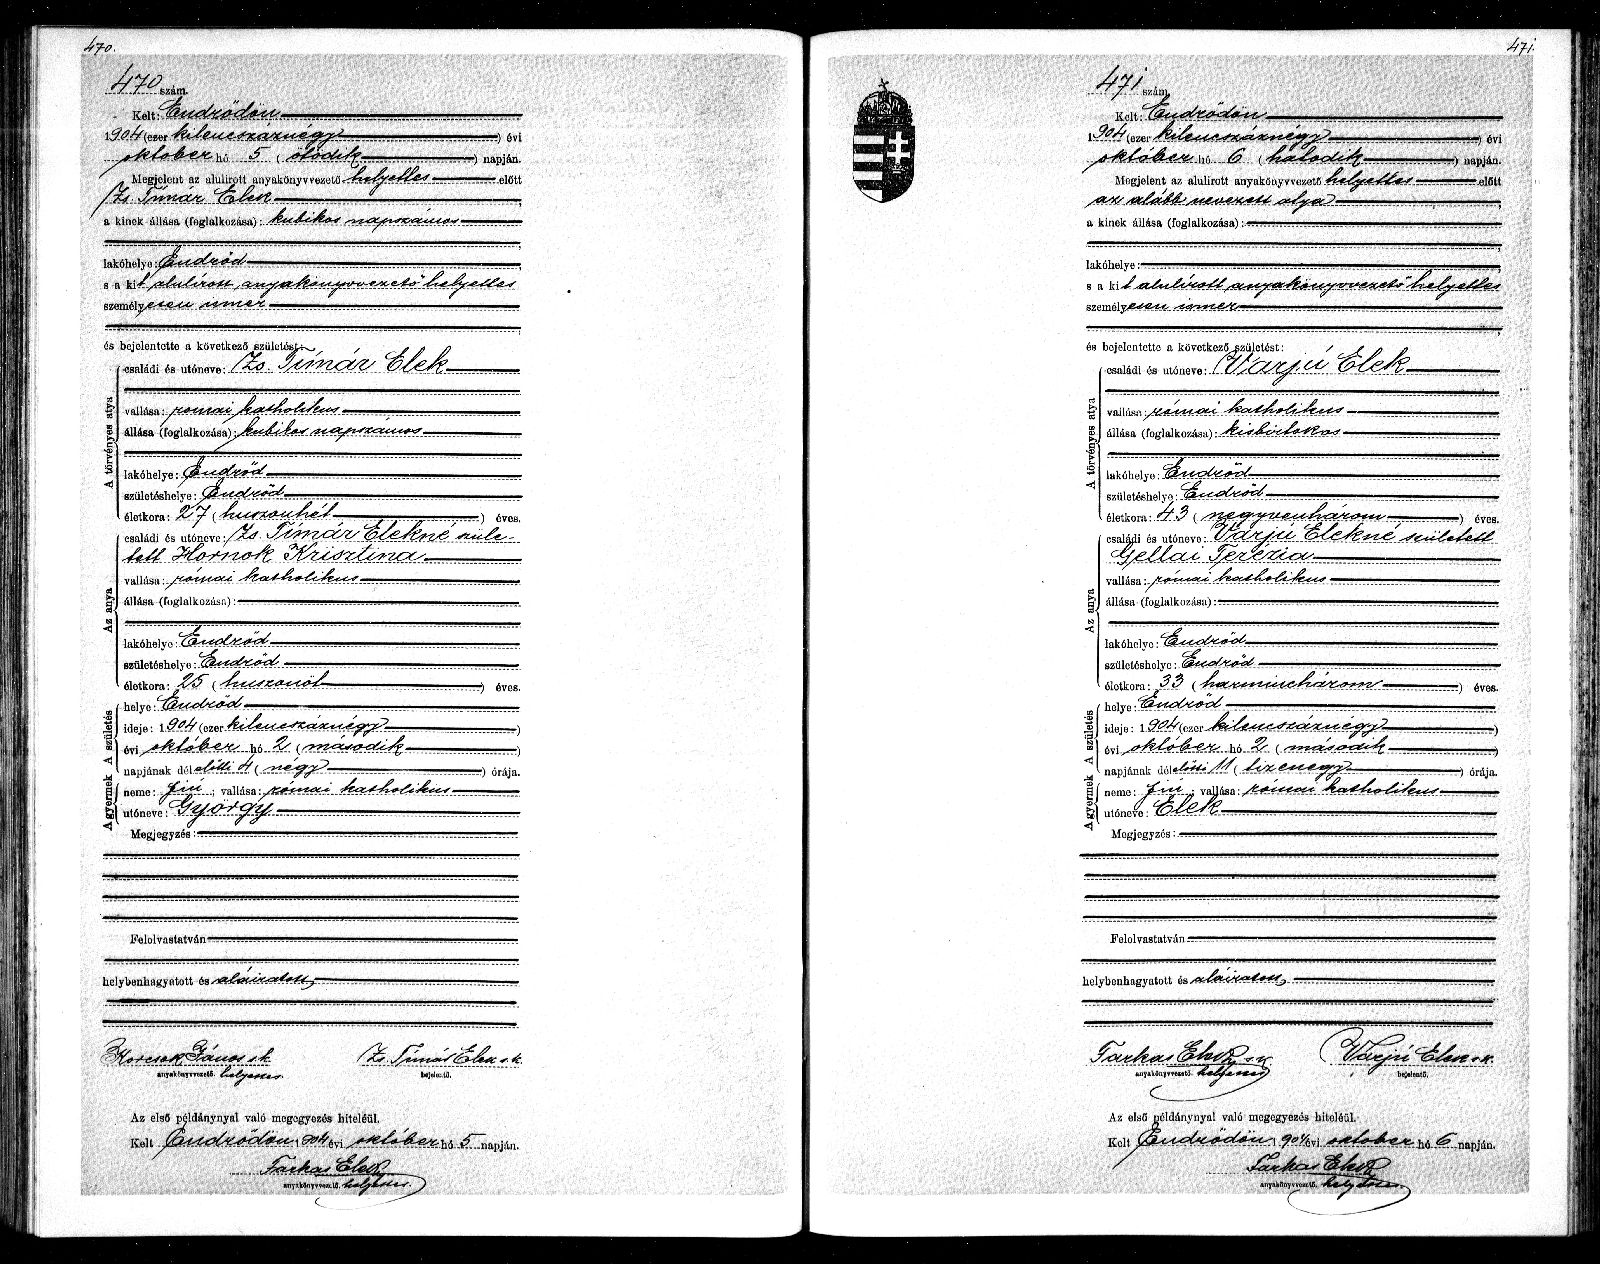 470.
470 szám.
Kelt: Endrődön
1904 (ezer kilencszáznégy) évi
október hó 5 (ötödik) napján.
Megjelent az alulirott anyakönyvvezető helyettes előtt
Zs. Tímár Elek
a kinek állása (foglalkozása): kubikos napszámos
lakóhelye: Endrőd
s a kit alulírott anyakönyvvezető helyettes
személyesen ismer
és bejelentette a következő születést:
A törvényes atya
családi és utóneve: Zs. Tímár Elek
vallása: római katholikus
állása (foglalkozása): kubikos napszámos
lakóhelye: Endrőd
születéshelye: Endrőd
életkora: 27 (huszonhét) éves.
Az anya
családi és utóneve: Zs. Tímár Elekné szüle-
tett Hornok Krisztina
vallása: római katholikus
állása (foglalkozása):
lakóhelye: Endrőd
születéshelye: Endrőd
életkora: 25 (huszonöt) éves.
A születés
helye: Endrőd
ideje: 1904 (ezer kilencszáznégy)
évi október hó 2 (második)
napjának délelőtti 4 (négy) órája.
A gyermek
neme: fiú; vallása: római katholikus
utóneve: György
Megjegyzés:
Felolvastatván
helybenhagyatott és aláiratott
Korcsok János s.k. Zs. Tímár Elek s.k.
anyakönyvvezető. helyettes. bejelentő.
Az első példánynyal való megegyezés hiteléül.
Kelt Endrődön 1904 évi október hó 5 napján.
Farkas Elek
anyakönyvvezető. helyettes.
471.
471 szám.
Kelt: Endrődön
1904 (ezer kilencszáznégy) évi
október hó 6 (hatodik) napján.
Megjelent az alulirott anyakönyvvezető helyettes előtt
az alább nevezett atya
a kinek állása (foglalkozása):
lakóhelye:
s a kit alulírott anyakönyvvezető helyettes
személyesen ismer
és bejelentette a következő születést:
A törvényes atya
családi és utóneve: Varjú Elek
vallása: római katholikus
állása (foglalkozása): kisbirtokos
lakóhelye: Endrőd
születéshelye: Endrőd
életkora: 43 (negyvenhárom) éves.
Az anya
családi és utóneve: Varjú Elekné született
Gellai Terézia
vallása: római katholikus
állása (foglalkozása):
lakóhelye: Endrőd
születéshelye: Endrőd
életkora: 33 (harminchárom) éves.
A születés
helye: Endrőd
ideje: 1904 (ezer kilencszáznégy)
évi október hó 2 (második)
napjának délelőtti 11 (tizenegy) órája.
A gyermek
neme: fiú; vallása: római katholikus
utóneve: Elek
Megjegyzés:
Felolvastatván
helybenhagyatott és aláiratott
Farkas Elek s.k. Varjú Elek s.k.
anyakönyvvezető. helyettes bejelentő.
Az első példánynyal való megegyezés hiteléül.
Kelt Endrődön 1904 évi október hó 6 napján.
Farkas Elek
anyakönyvvezető. helyettes